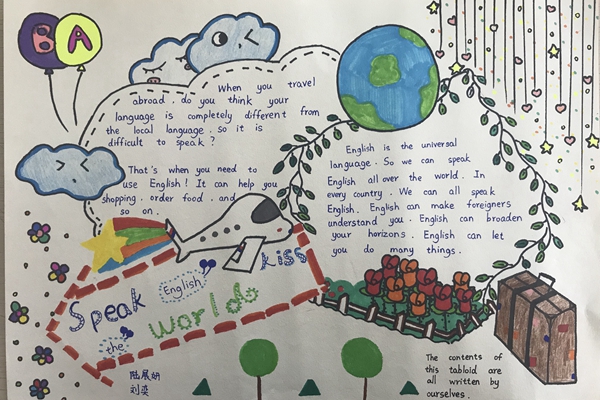 B A
When you travel
abroad. do you think your
language is completely different from
the local language. so it is
difficult to speak?
That's when you need to
use English! It can help you
shopping. order food. and
so on.
English is the universal
language. So we can speak
English all over the world. In
every country. We can all speak
English. English can make foreigners
understand you. English can broaden
your horizons. English can let
you do many things.
Speak English kiss
the world
陆展妍
刘奕
The contents of
this tabloid are
all written by
ourselves.